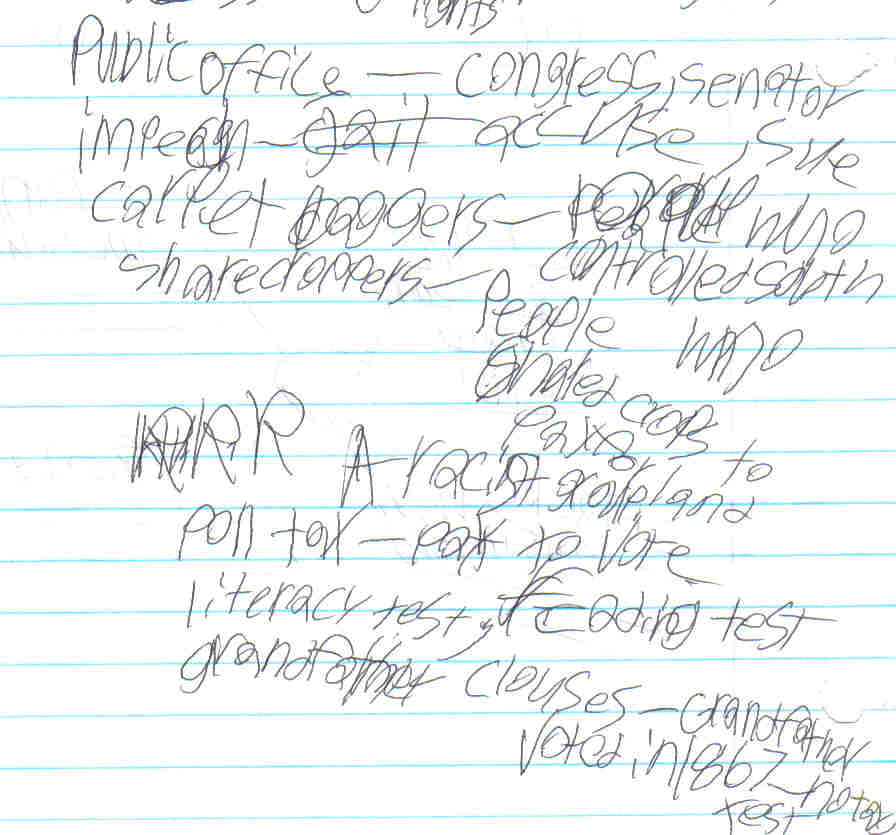 rights
Public office — congress, senator
impeach – accuse, sue
carpet baggers – people who
controlled south
sharecroppers –
People who
Shared crops
A racist group
to
land
poll tax – pay to vote
literacy test, reading test
grandfather clauses – Grandfather
Voted in 1867 – no tax
test